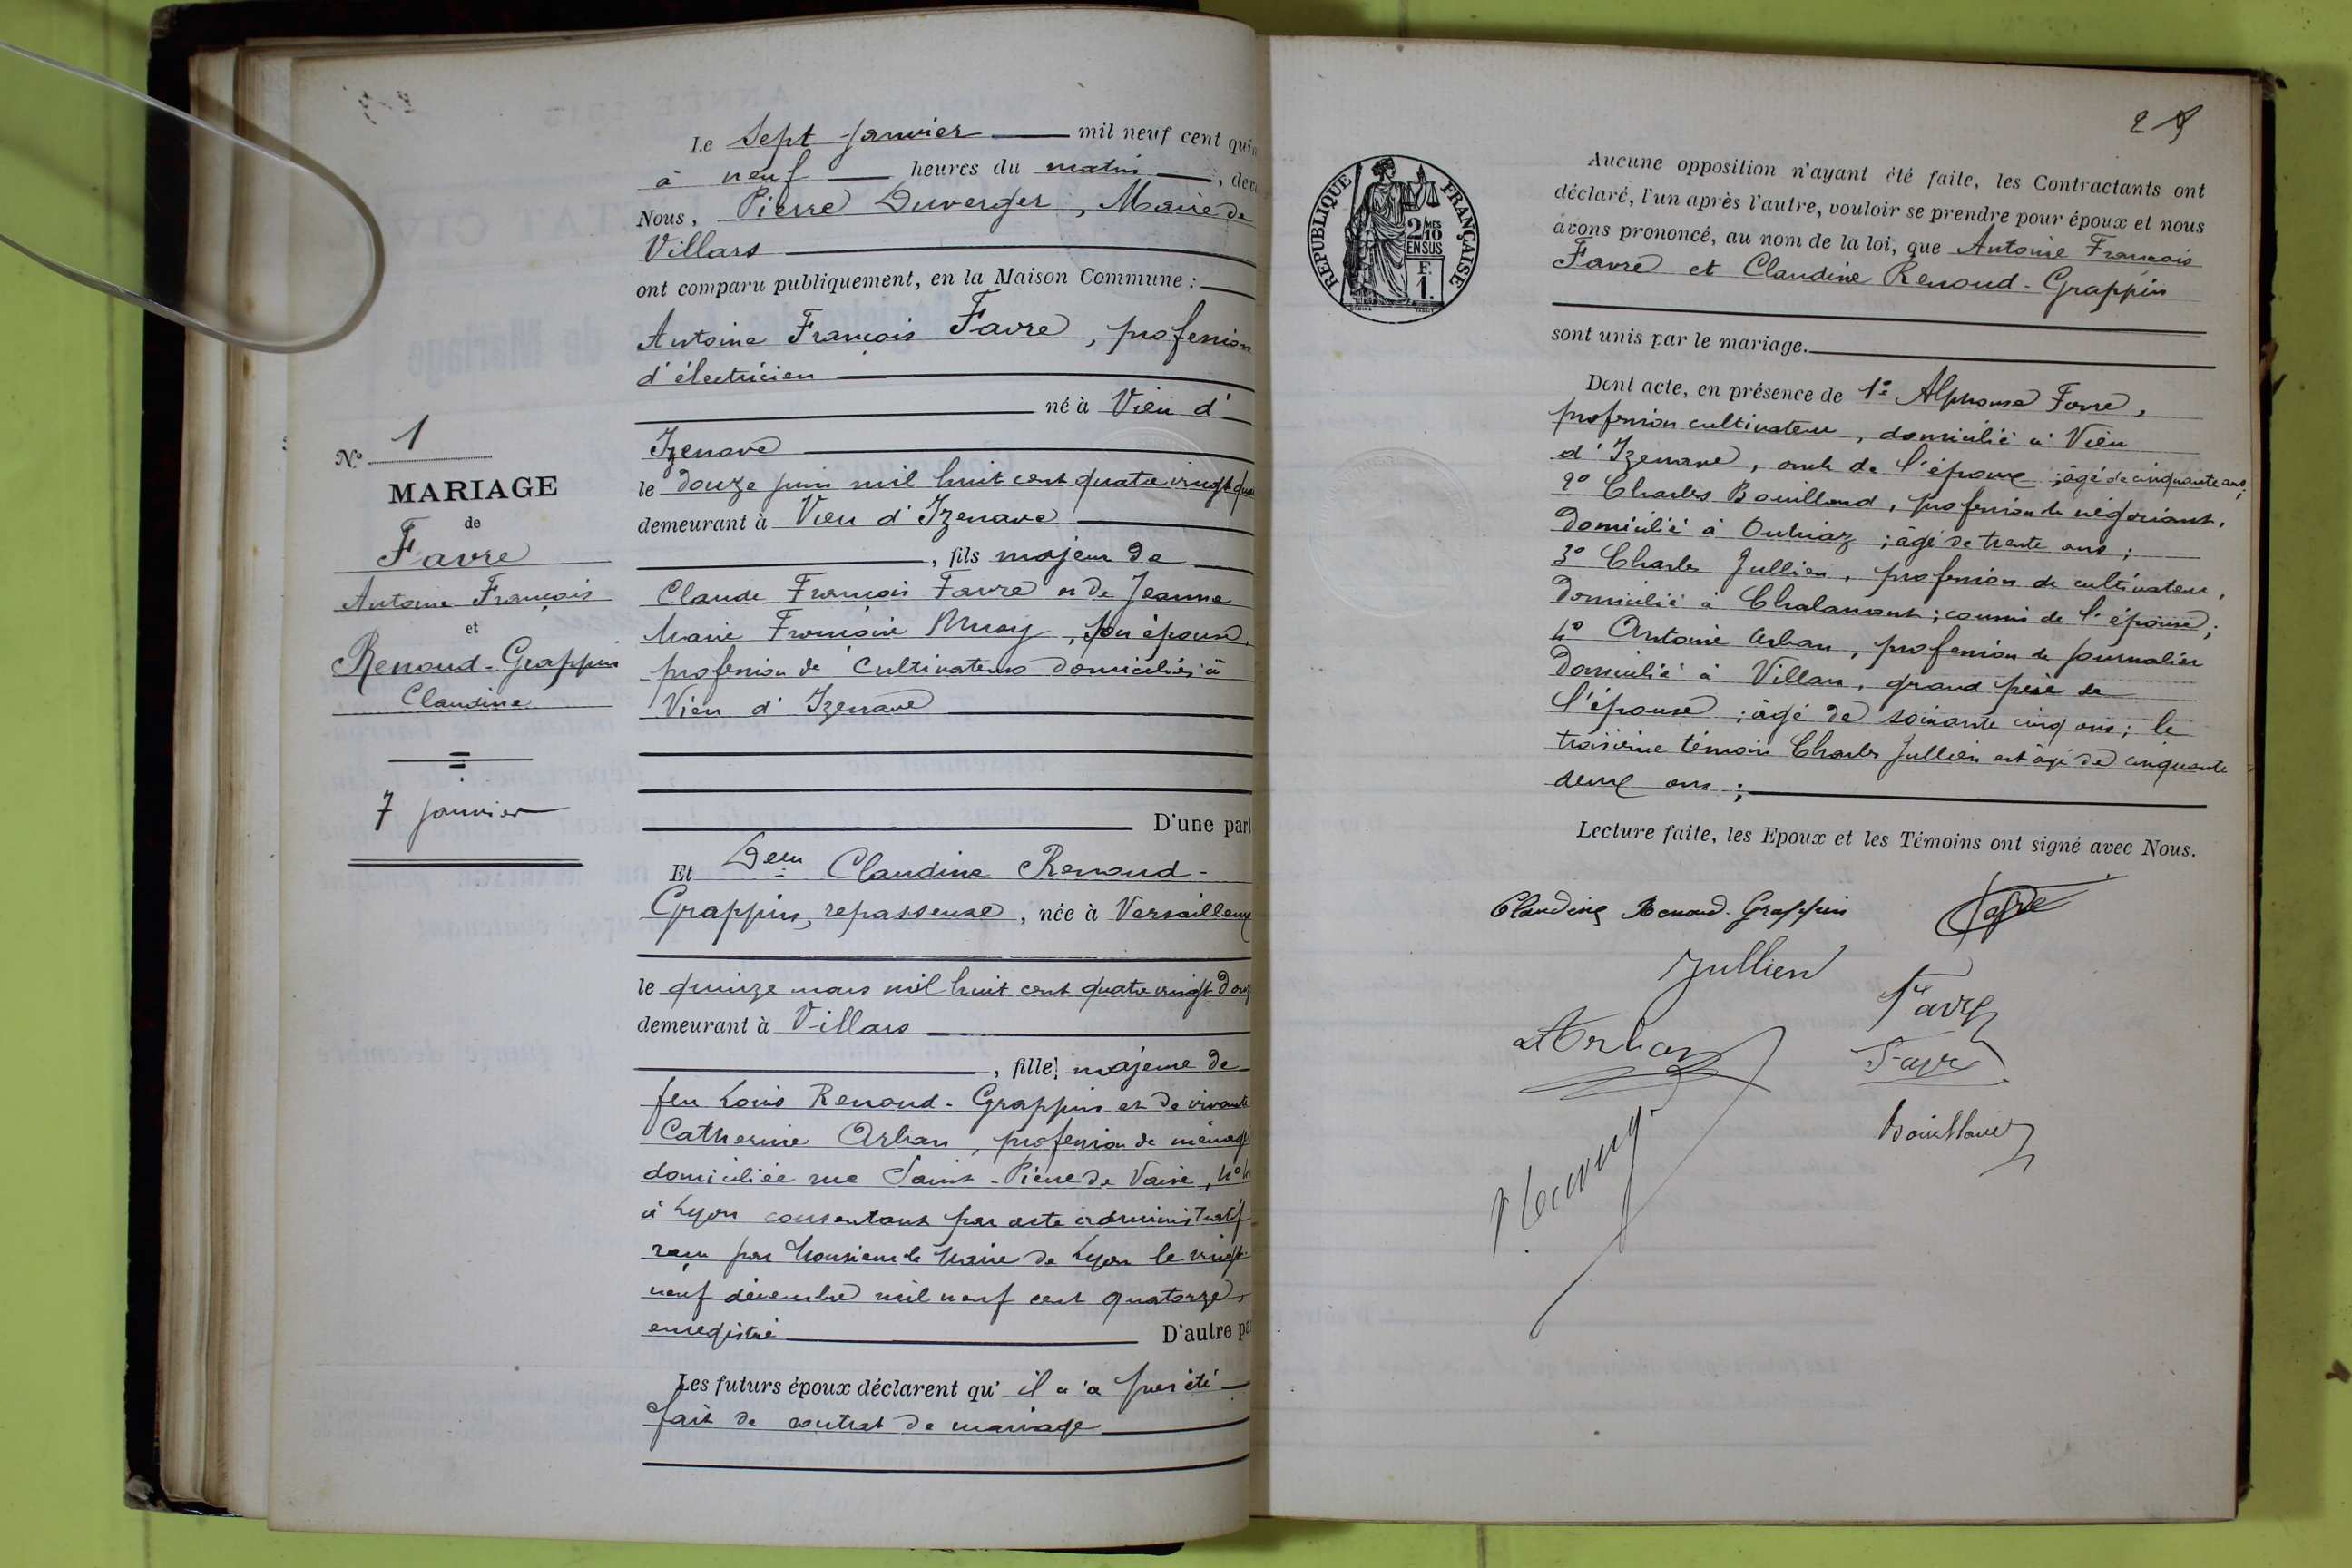 Le Sept Janvier mil neuf cent quin
à neuf heures du matin, dev
Nous, Pierre Duverger, Maire de
Villars
ont comparu publiquement, en la Maison Commune :
Antoine François Favre, profession
d'électricien
né à Vieu d'
Izenave
le douze juin mil huit cent quatre vingt
demeurant à Vieu d'Izenave
, fils majeur de
Claude François Favre et de Jeanne
Marie Françoise, son épouse,
profession de cultivateurs domiciliés à
Vieu d'Izenave
D'une part
Et Delle Claudine Renoud-
Grappin, repasseuse, née à Versailleux
le quinze mars mil huit cent quatre vingt douz
demeurant à Villars
, fille majeure de
feu Louis Renoud-Grappin et de vivante
Catherine Arban, profession de ménagè
domiciliée rue Saint-Pierre de Vaise, No
à Lyon consentant par acte administratif
reçu par Monsieur le Maire de Lyon le vingt
neuf décembre mil neuf cent quatorze,
enregistré D'autre pa
Les futurs époux déclarent qu'il n'a pas été
fait de contrat de mariage
No 1
MARIAGE
de
Favre
Antoine François
et
Renoud-Grappin
Claudine
7 janvier
2
RÉPUBLIQUE FRANÇAISE
2/10MES
EN SUS
F.
1.
Aucune opposition n'ayant été faite, les Contractants ont
déclaré, l'un après l'autre, vouloir se prendre pour époux et nous
avons prononcé, au nom de la loi, que Antoine François
Favre et Claudine Renoud-Grappin
sont unis par le mariage.
Dont acte, en présence de 1° Alphonse Favre,
profession cultivateur, domicilié à Vieu
d'Izenave, oncle de l'époux ; âgé de cinquante ans ;
2° Charles Bouilloud, profession de négociant,
domicilié à Outriaz ; âgé de trente ans ;
3° Charles Jullien, profession de cultivateur,
domicilié à Chalamont ; cousin de l'épouse ;
4° Antoine Arban, profession de journalier
domicilié à Villars, grand père de
l'épouse ; âgé de soixante cinq ans ; le
troisième témoin Charles Jullien est âgé de cinquante
deux ans ;
Lecture faite, les Epoux et les Témoins ont signé avec Nous.
Claudine Renoud-Grappin Favre
Jullien
Favre
Arban
Favre
Bouilloud